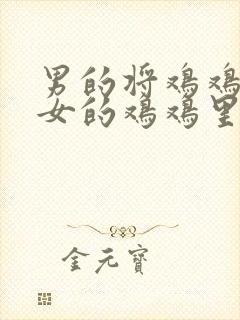 男的将鸡鸡
女的鸡鸡里
金元宝